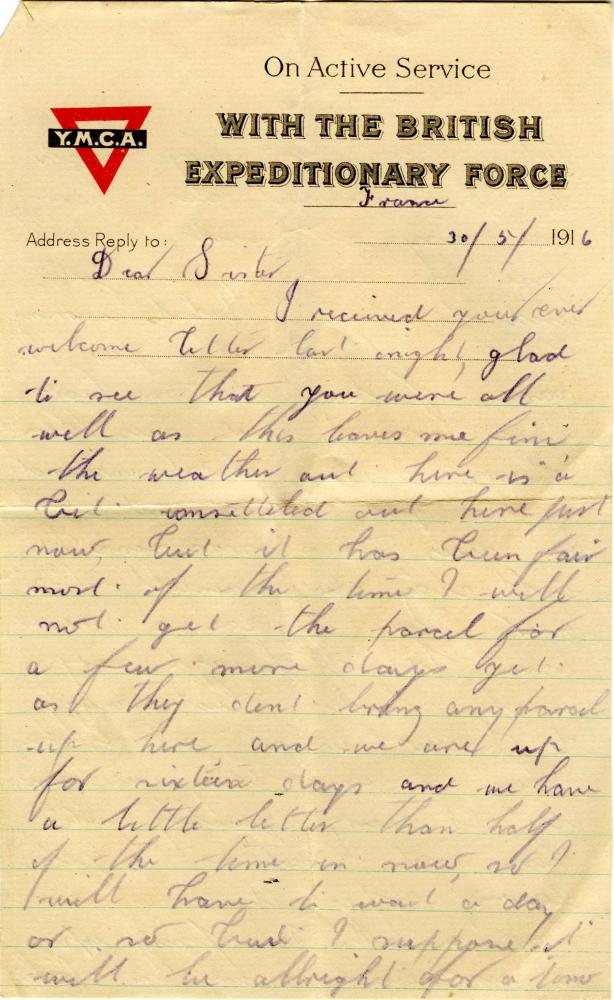 On Active Service
WITH THE BRITISH
EXPEDITIONARY FORCE
Y.M.C.A.
France
Address Reply to: 30/5/1916
Dear Sister
I received your ever
welcome letter last night, glad
to see that you were all
well as this leaves me fine
the weather out here is a
bit unsetteled out here just
now, but it has been fair
most of the time I will
not get the parcel for
a few more days yet
as they dont bring any parcel
up here and we are up
for sixteen days and we have
a little better than half
of the time in now, so I
will have to wait a day
or so but I suppose it
will be allright for a time